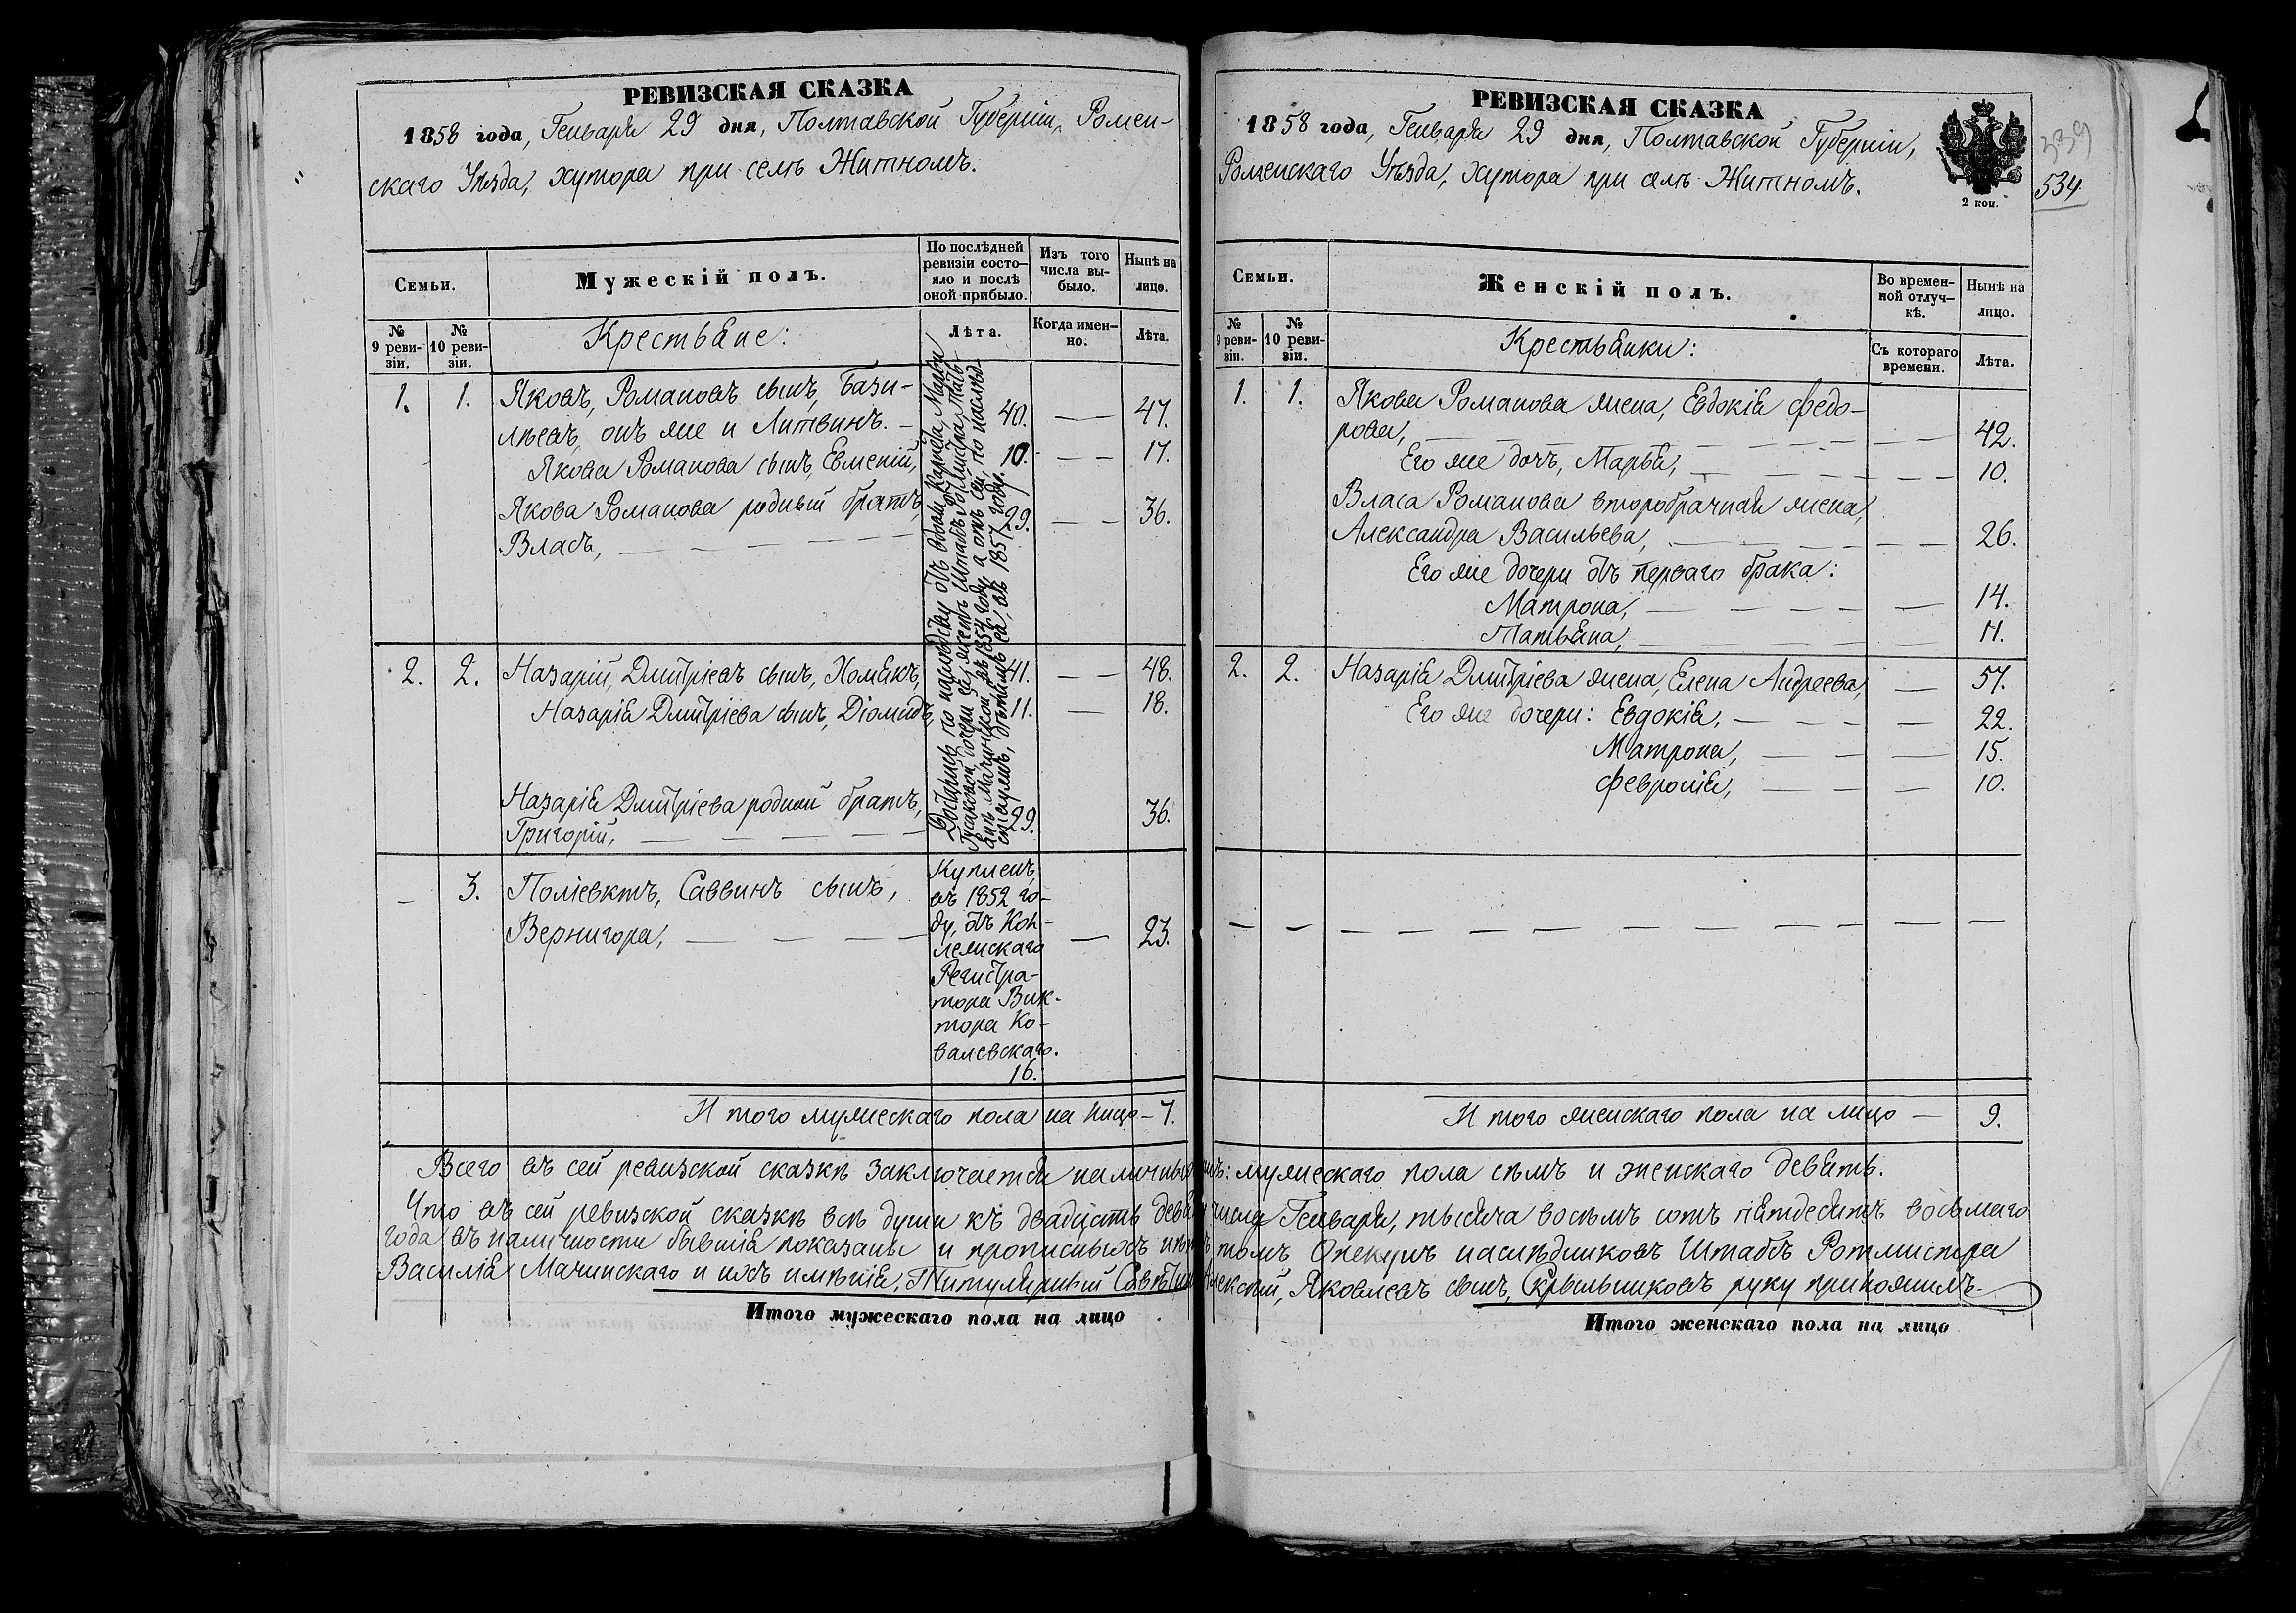 РЕВИЗСКАЯ СКАЗКА
1858 года, Генваря 29 дня, Полтавской Губерніи, Ромен-
скаго Уѣзда, хутора при селѣ Житномъ.
Семьи.
Мужескій полъ.
По послѣдней ревизіи состо-
яло и послѣ оной прибыло.
Изъ того числа вы-
было.
Нынѣ на лицо.
№ 9 реви-
зіи.
№ 10 реви-
зіи.
Крестьяне:
Лѣта.
Когда имен-
но.
Лѣта.
1. 1. Яковъ, Романовъ сынъ, Бази-
лѣевъ, онъ же и Литвинъ. — 40. — — 47.
Якова Романова сынъ, Евмений, 10. — — 17.
Якова Романова родный братъ
Власъ, — — — — 29. — — 36.
2. 2. Назарій, Дмитріевъ сынъ, Хомякъ, 41. — — 48.
Назарія Дмитріева сынъ, Діомидъ, 11. — 18.
Назарія Дмитріева родной братъ,
Григорій, — — — — 29. 36.
Достались по наслѣдству отъ вдовы Марьи
дочери ея, женѣ Штабсъ Ротмистра
Мачинской, въ 1854 году, а отъ сей, по наслѣд-
ству, дѣтямъ ея, въ 1857 году.
— 3. Поліевктъ, Саввинъ сынъ,
Вернигора, — — — — — 23.
Купленъ,
въ 1852 го-
ду, отъ Кол-
лежскаго
Регистра-
тора Вик-
тора Ко-
валевскаго.
16.
Итого мужескаго пола на лицо — 7.
РЕВИЗСКАЯ СКАЗКА
1858 года, Генваря 29 дня, Полтавской Губерніи,
Роменскаго Уѣзда, хутора при селѣ Житномъ.
2 коп.
339
534
Семьи.
Женскій полъ.
Во времен-
ной отлуч-
кѣ.
Нынѣ на лицо.
№ 9 реви-
зіи.
№ 10 реви-
зіи.
Крестьянки:
Съ котораго времени.
Лѣта.
1. 1. Якова Романова жена, Евдокія Федо-
рова, — — — — — — — 42.
Его же дочь, Марья, — — — — — 10.
Власа Романова второбрачная жена,
Александра Васильева, — — — — — 26.
Его же дочери отъ перваго брака:
Матрона, — — — — — 14.
Татьяна, — — — — — 11.
2. 2. Назарія Дмитріева жена, Елена Андреева, — 57.
Его же дочери: Евдокія, — — — — 22.
Матрона, — — — — 15.
Февронія, — — — 10.
— — — — — — — — — — —
Итого женскаго пола на лицо — 9.
Всего въ сей ревизской сказкѣ заключается наличныхъ: мужескаго пола семъ и женскаго девять.
Что въ сей ревизской сказкѣ всѣ души къ двадцать числа Генваря, тысяча восемъ сотъ пятдесятъ восьмаго
года въ наличности бывшія показаны и прописныхъ нѣтъ, въ томъ Опекунъ наслѣдниковъ Штабсъ Ротмистра
Василія Мачинскаго и ихъ имѣнія, Титулярный Совѣтникъ Алексѣй, Яковлевъ сынъ, Крыльниковъ руку приложилъ.
Итого мужескаго пола на лицо
Итого женскаго пола на лицо